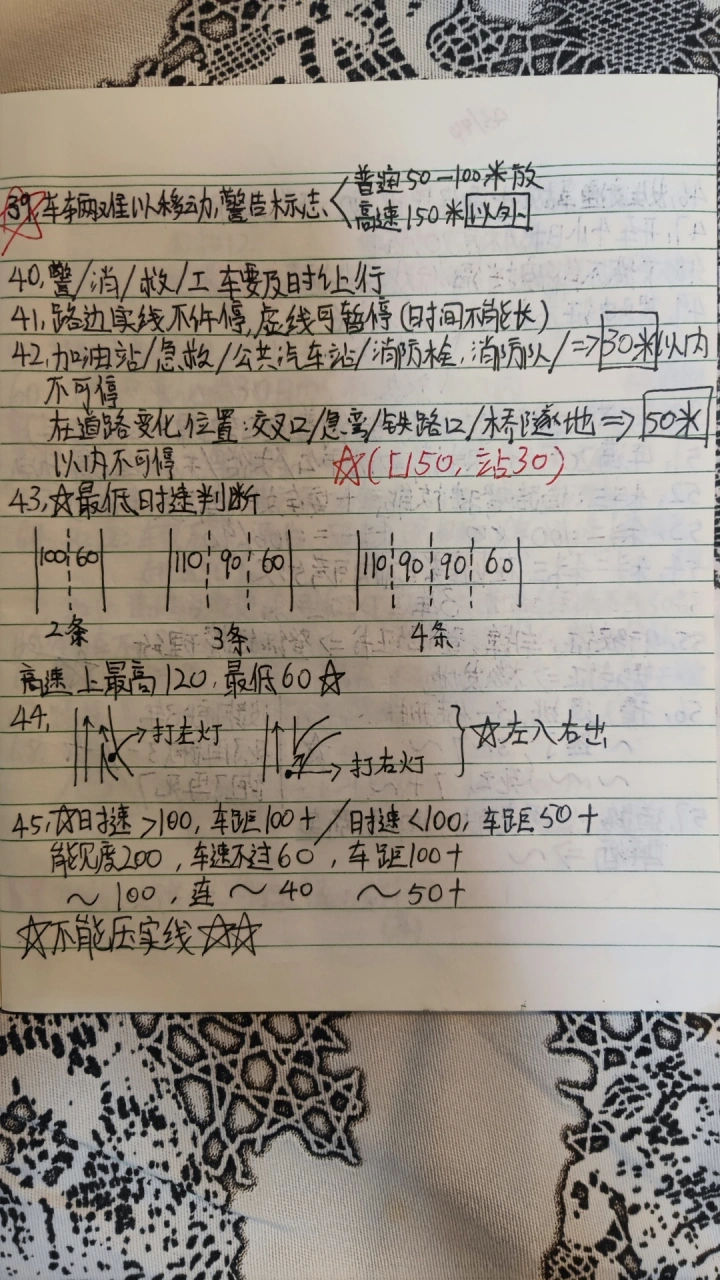 39, 车车两难以移动,警告标志 普通50—100米放
高速150米以外
40, 警/消/救/工 车要及时让行
41, 路边实线不许停,虚线可暂停(时间不能长)
42, 加油站/急救/公共汽车站/消防栓,消防队/⇒30米以内
不可停
在道路变化位置:交叉口/急弯/铁路口/桥隧地⇒50米
以内不可停 ☆(口50, 站30)
43, ☆最低时速判断
100 60 110 90 60 110 90 90 60
2条 3条 4条
高速上最高120,最低60☆
44, 打左灯 打右灯 ☆左入右出
45, ☆时速>100, 车距100+/时速<100, 车距50+
能见度200, 车速不过60, 车距100+
～100, 速～40 ～50+
☆不能压实线☆☆